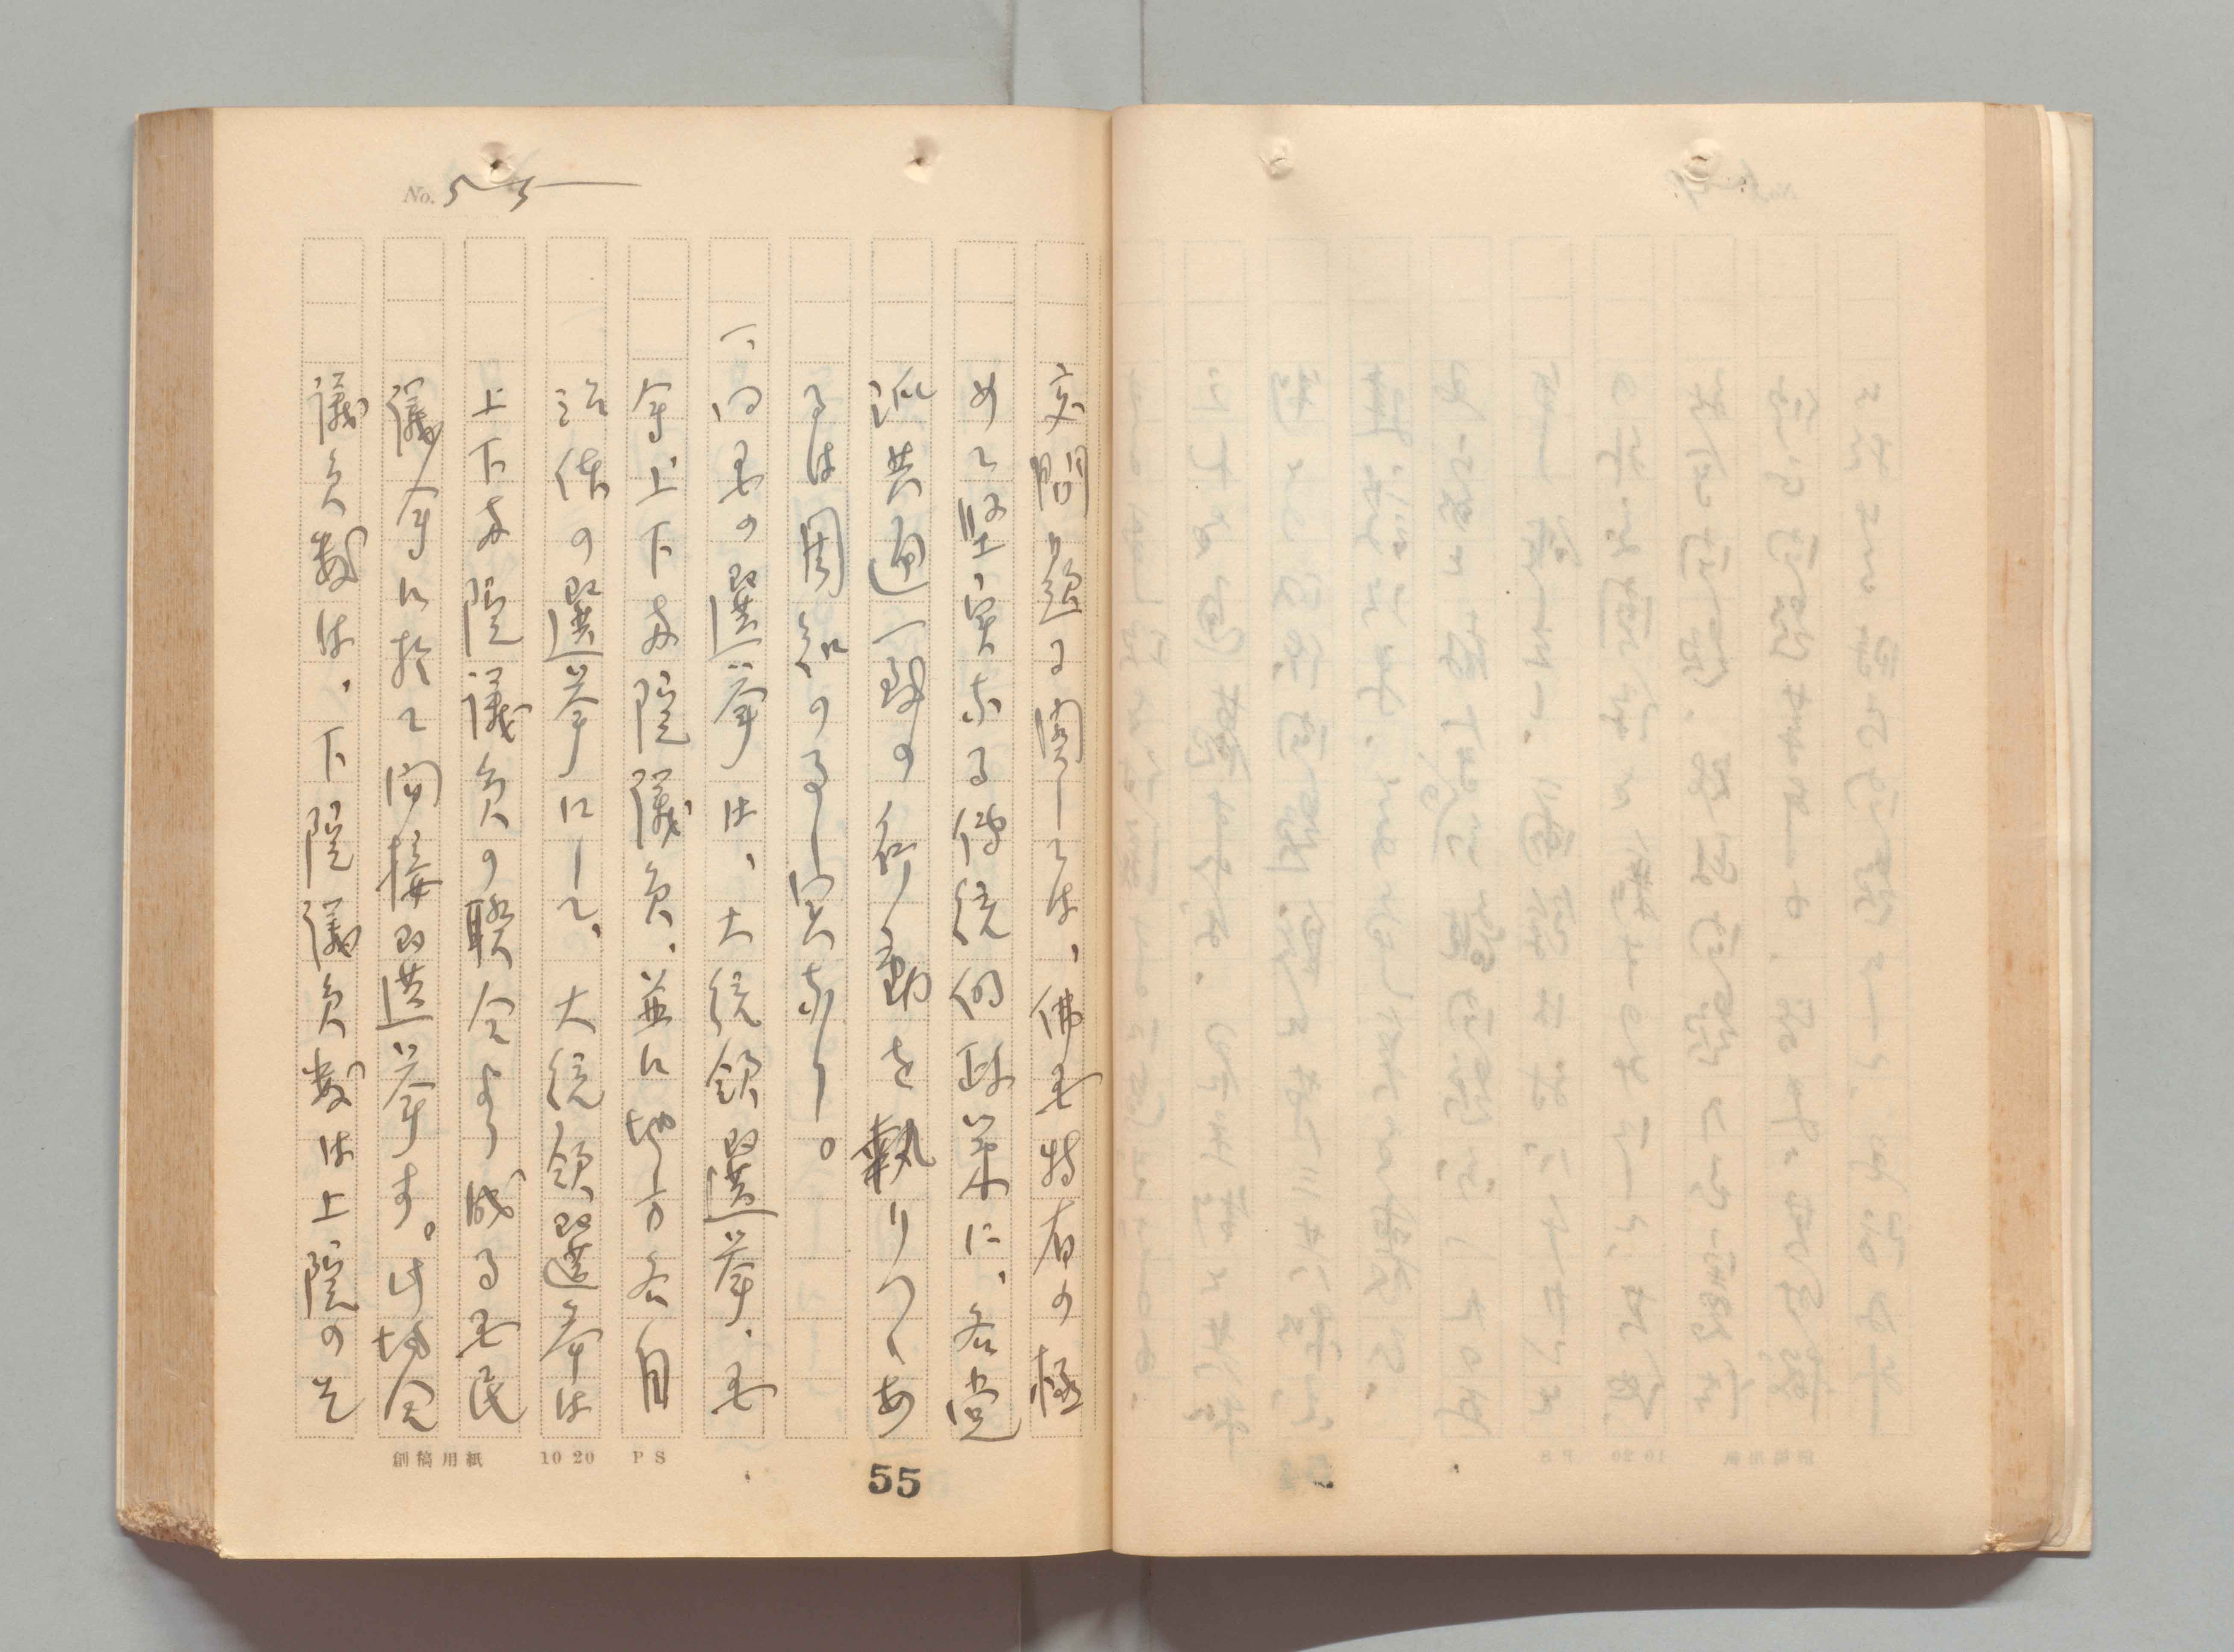 No. 55
交問題に関しては、佛国特有の極
めて堅実なる伝統的政策に、各党
派共通一致の行動を執りつゝあ
るは周知のるし実なり。
一、同国の選挙は、大統領選挙、国
会上下両院議員、並に地方各自
治体の選挙にして、大統領選挙は
上下両院議員の聯合より成る国民
議会に於て間接選挙す。此場合
議員数は、下院議員数は上院のそ
創稿用紙 10 20 PS
55